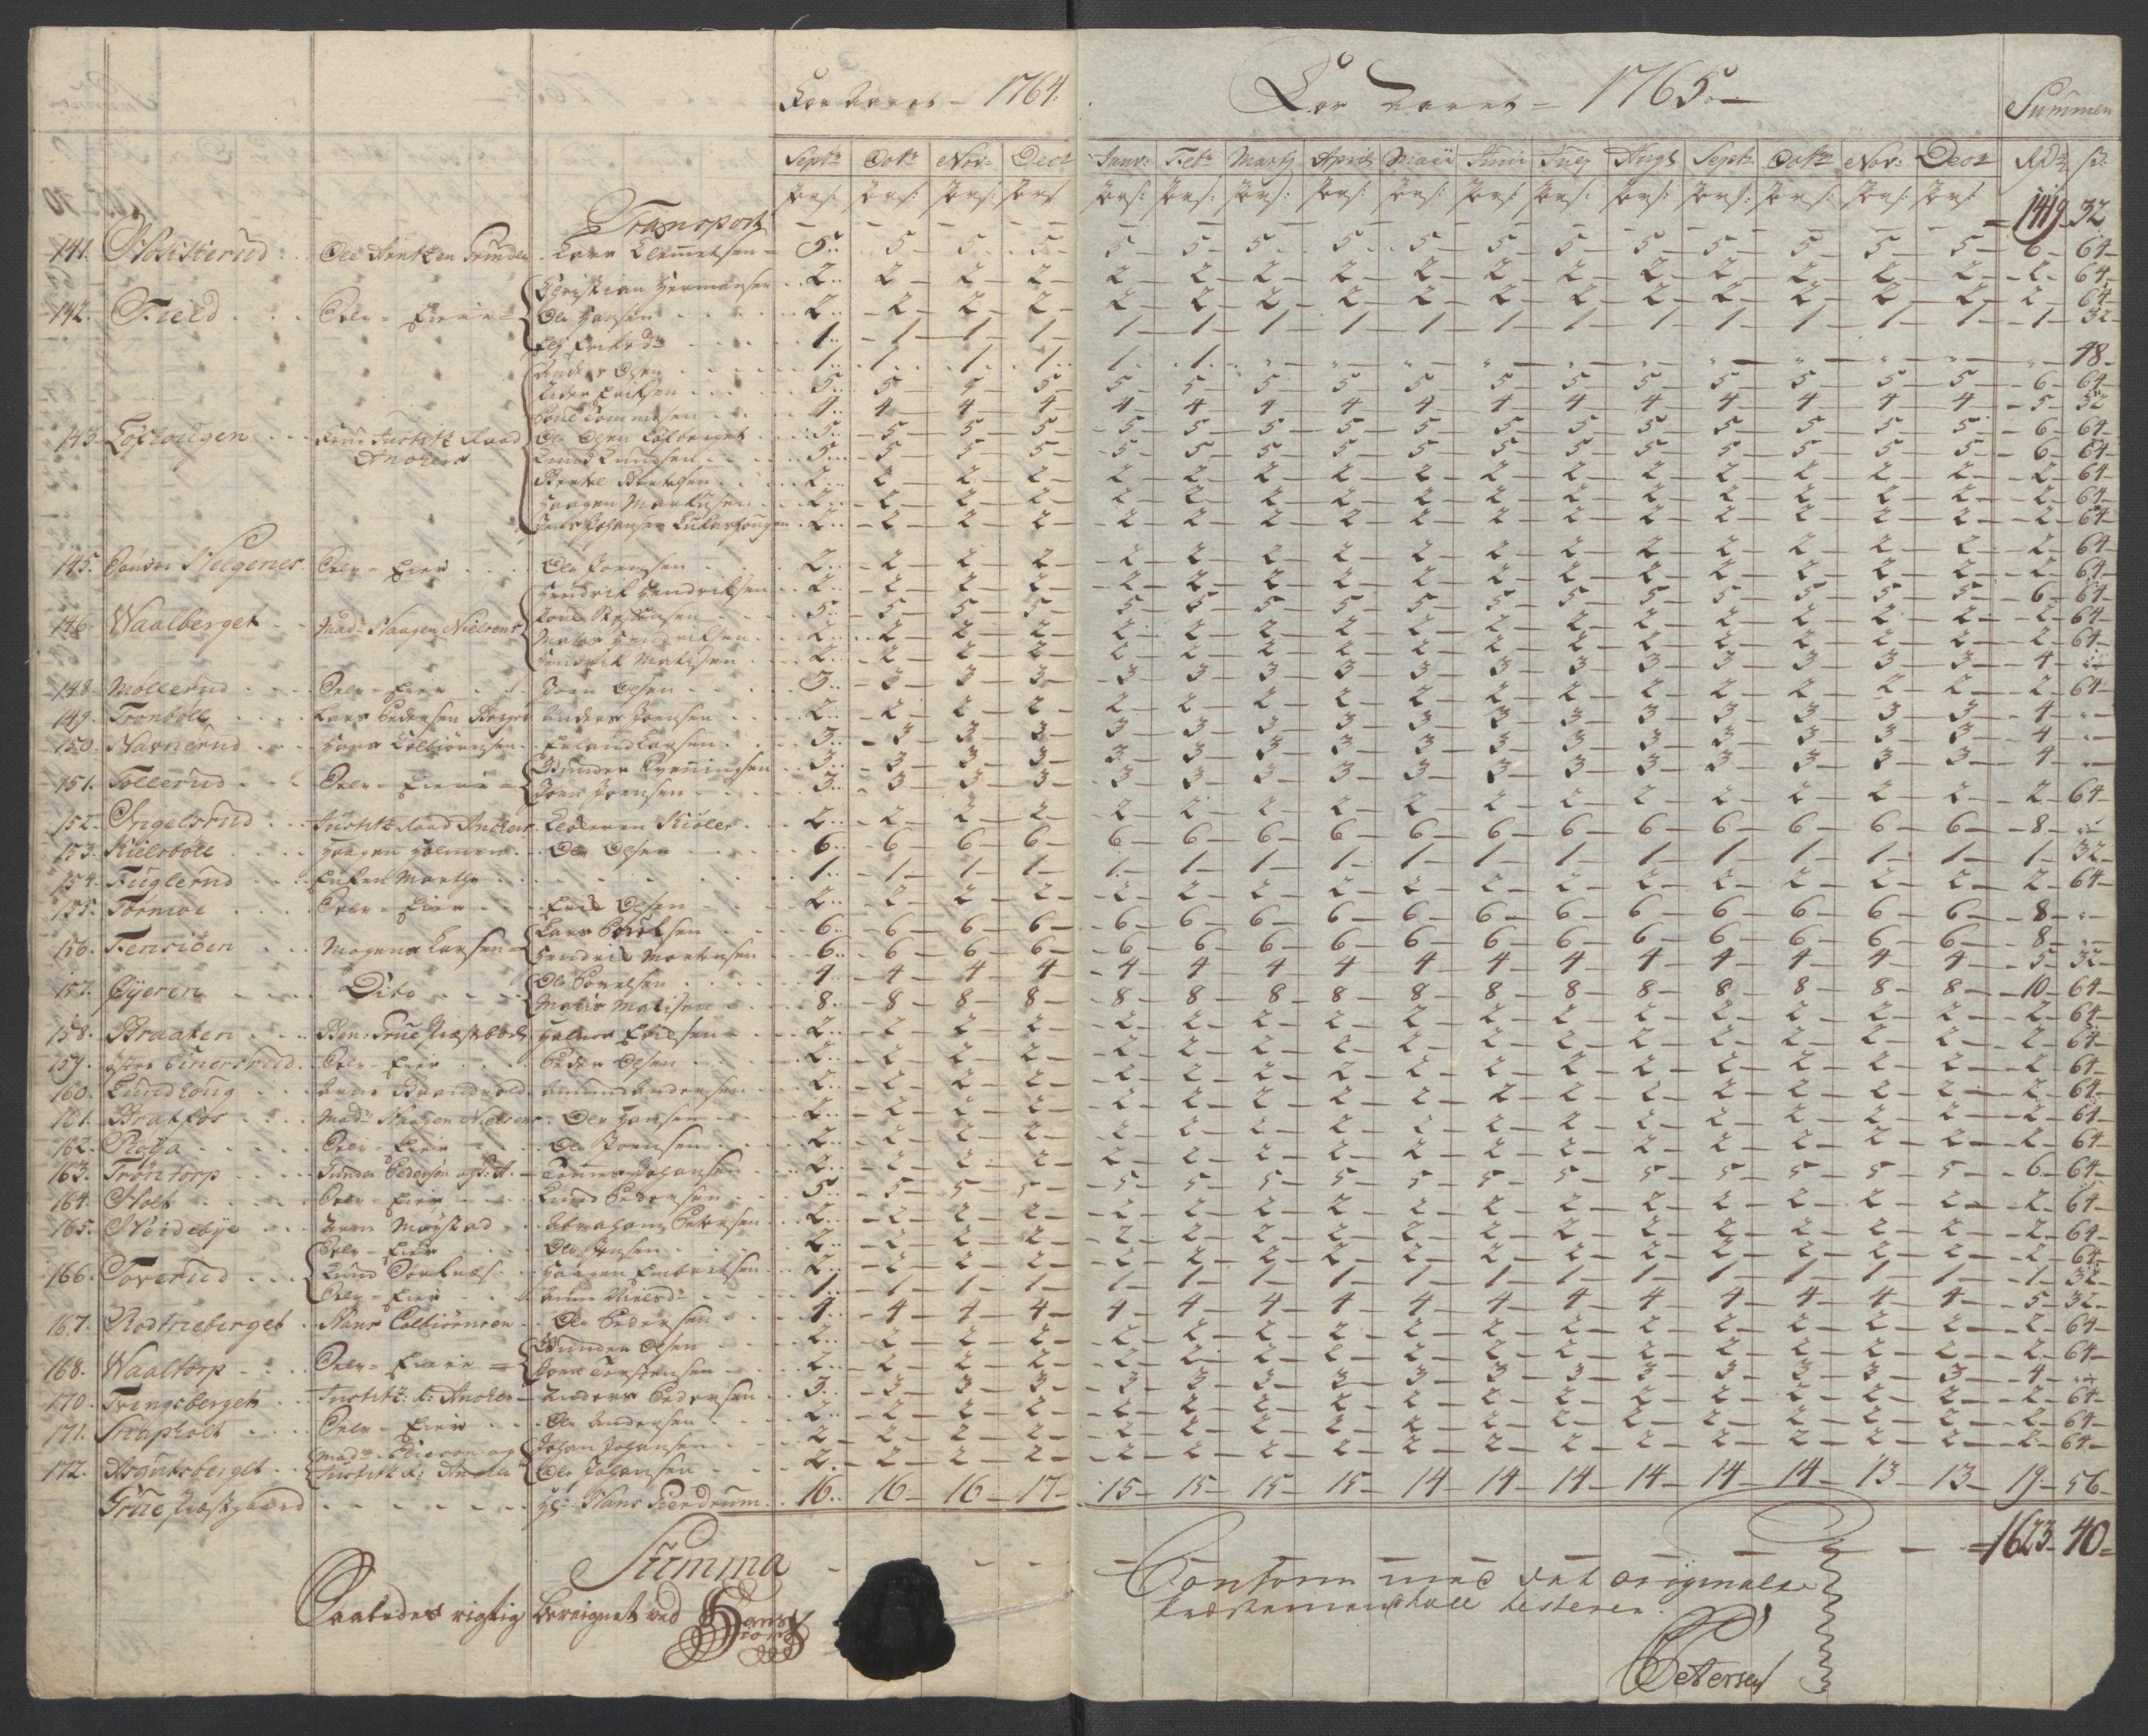 For Aaret = 1764. For Aaret = 1765. Summen
Septr Octr Nov: Decr Janv: Febr Martj April Maii Junii Julij Augt Septr Octbr Nov: Decr Rdr s:
Pers: Pers: Pers: Pers Pers: Pers: Pers: Pers: Pers: Pers: Pers: Pers: Pers: Pers: Pers: Pers
Transport = 1419 32
141. Ole Lars Clemetsen 5 5 5 5 5 5 5 5 5 5 5 5 5 5 5 5 6 64
Christian Hermansen 2 2 2 2 2 2 2 2 2 2 2 2 2 2 2 2 2 64
142. Field Selv = Eiere = Ole Hansen 2 2 2 2 2 2 2 2 2 2 2 2 2 2 2 2 2 64
1 1 1 1 1 1 1 1 1 1 1 1 1 1 1 1 1 32
Anders Olsen 1 1 1 1 1 1 " " " " " " " " " " " 48
Peder Eriksen 5 5 5 5 5 5 5 5 5 5 5 5 5 5 5 5 6 64
4 4 4 4 4 4 4 4 4 4 4 4 4 4 4 4 5 32
143. Justitz Raad Ole Olsen 5 5 5 5 5 5 5 5 5 5 5 5 5 5 5 5 6 64
Ankers Knud Knudsen 5 5 5 5 5 5 5 5 5 5 5 5 5 5 5 5 6 64
2 2 2 2 2 2 2 2 2 2 2 2 2 2 2 2 2 64
Haagen Markusen 2 2 2 2 2 2 2 2 2 2 2 2 2 2 2 2 2 64
Johansen 2 2 2 2 2 2 2 2 2 2 2 2 2 2 2 2 2 64
145. Søndre Helgenes Selv = Eier Ole Joensen 2 2 2 2 2 2 2 2 2 2 2 2 2 2 2 2 2 64
Hendrik Hendriksen 2 2 2 2 2 2 2 2 2 2 2 2 2 2 2 2 2 64
146. Waalberget Mad: Haagen Nielsens 5 5 5 5 5 5 5 5 5 5 5 5 5 5 5 5 6 64
Mates Hendriksen 2 2 2 2 2 2 2 2 2 2 2 2 2 2 2 2 2 64
Hendrik Matisen 2 2 2 2 2 2 2 2 2 2 2 2 2 2 2 2 2 64
148. Møllerud Selv = Eier Joen Olsen 3 3 3 3 3 3 3 3 3 3 3 3 3 3 3 3 4 "
149. Tronbøll Lars Pedersen Anders Joensen 2 2 2 2 2 2 2 2 2 2 2 2 2 2 2 2 2 64
150. Navnerud Hans Colbiørnsen Erland Larsen 3 3 3 3 3 3 3 3 3 3 3 3 3 3 3 3 4 "
Gunder Svenningsen 3 3 3 3 3 3 3 3 3 3 3 3 3 3 3 3 4 "
151. Tollerud Selv = Eiere = Joen Joensen 3 3 3 3 3 3 3 3 3 3 3 3 3 3 3 3 4 "
152. Ingelsrud Justitz Raad Ankers Kiøler 2 2 2 2 2 2 2 2 2 2 2 2 2 2 2 2 2 64
153. Kielsbøll Haagen Holmen Ole Olsen 6 6 6 6 6 6 6 6 6 6 6 6 6 6 6 6 8 "
154. Fuglerud Enken Marthe 1 1 1 1 1 1 1 1 1 1 1 1 1 1 1 1 1 32
155. Tørmoe Selv = Eier Erik Olsen 2 2 2 2 2 2 2 2 2 2 2 2 2 2 2 2 2 64
Lars Poulsen 6 6 6 6 6 6 6 6 6 6 6 6 6 6 6 6 8 "
156. Fensiøen Mogens Larsen = Hendrik Mortensen 6 6 6 6 6 6 6 6 6 6 6 6 6 6 6 6 8 "
157. Øyeren Dito Ole Povelsen 4 4 4 4 4 4 4 4 4 4 4 4 4 4 4 4 5 32
Matis Matisen 8 8 8 8 8 8 8 8 8 8 8 8 8 8 8 8 10 64
158. Braaten Halvor Erichsen 2 2 2 2 2 2 2 2 2 2 2 2 2 2 2 2 2 64
159. Selv = Eier Peder Olsen 2 2 2 2 2 2 2 2 2 2 2 2 2 2 2 2 2 64
160. Lundhoug Arne Brandvold Amund Andersen 2 2 2 2 2 2 2 2 2 2 2 2 2 2 2 2 2 64
161. Bratfos Mad: Haagen Nielsens Ole Hansen 2 2 2 2 2 2 2 2 2 2 2 2 2 2 2 2 2 64
162. Selv = Eier Ole Joensen 2 2 2 2 2 2 2 2 2 2 2 2 2 2 2 2 2 64
163. Trøntorp Gunder Pedersen Johansen 2 2 2 2 2 2 2 2 2 2 2 2 2 2 2 2 2 64
164. Holt Selv = Eier Knud Pedersen 5 5 5 5 5 5 5 5 5 5 5 5 5 5 5 5 6 64
165. Nordebye Abraham Petersen 2 2 2 2 2 2 2 2 2 2 2 2 2 2 2 2 2 64
Selv = Eier Ole Jensen 2 2 2 2 2 2 2 2 2 2 2 2 2 2 2 2 2 64
166. Toverud Haagen Embretsen 2 2 2 2 2 2 2 2 2 2 2 2 2 2 2 2 2 64
Selv = Eier Anne Nielsdr 1 1 1 1 1 1 1 1 1 1 1 1 1 1 1 1 1 32
167. Rodtneberget Hans Colbiørnsen Ole Pedersen 4 4 4 4 4 4 4 4 4 4 4 4 4 4 4 4 5 32
Gunder Olsen 2 2 2 2 2 2 2 2 2 2 2 2 2 2 2 2 2 64
168. Waaltorp Selv = Eiere = Joen Torstensen 2 2 2 2 2 2 2 2 2 2 2 2 2 2 2 2 2 64
170. Tvingsberget Justitz: R: Anker Anders Pedersen 3 3 3 3 3 3 3 3 3 3 3 3 3 3 3 3 4 "
171. Snapholt Selv = Eier Ole Andersen 2 2 2 2 2 2 2 2 2 2 2 2 2 2 2 2 2 64
Johan Johansen 2 2 2 2 2 2 2 2 2 2 2 2 2 2 2 2 2 64
172. Asgutsberget Justitz R: Anker Ole Johansen 2 2 2 2 2 2 2 2 2 2 2 2 2 2 2 2 2 64
Grue Præstgaard Hr: Hans 16 16 16 17 15 15 15 15 14 14 14 14 14 14 13 13 19 56
Summa = 1623 40
Saaledes rigtig beregnet ved
Conform med det originale
testerer.
Petersen